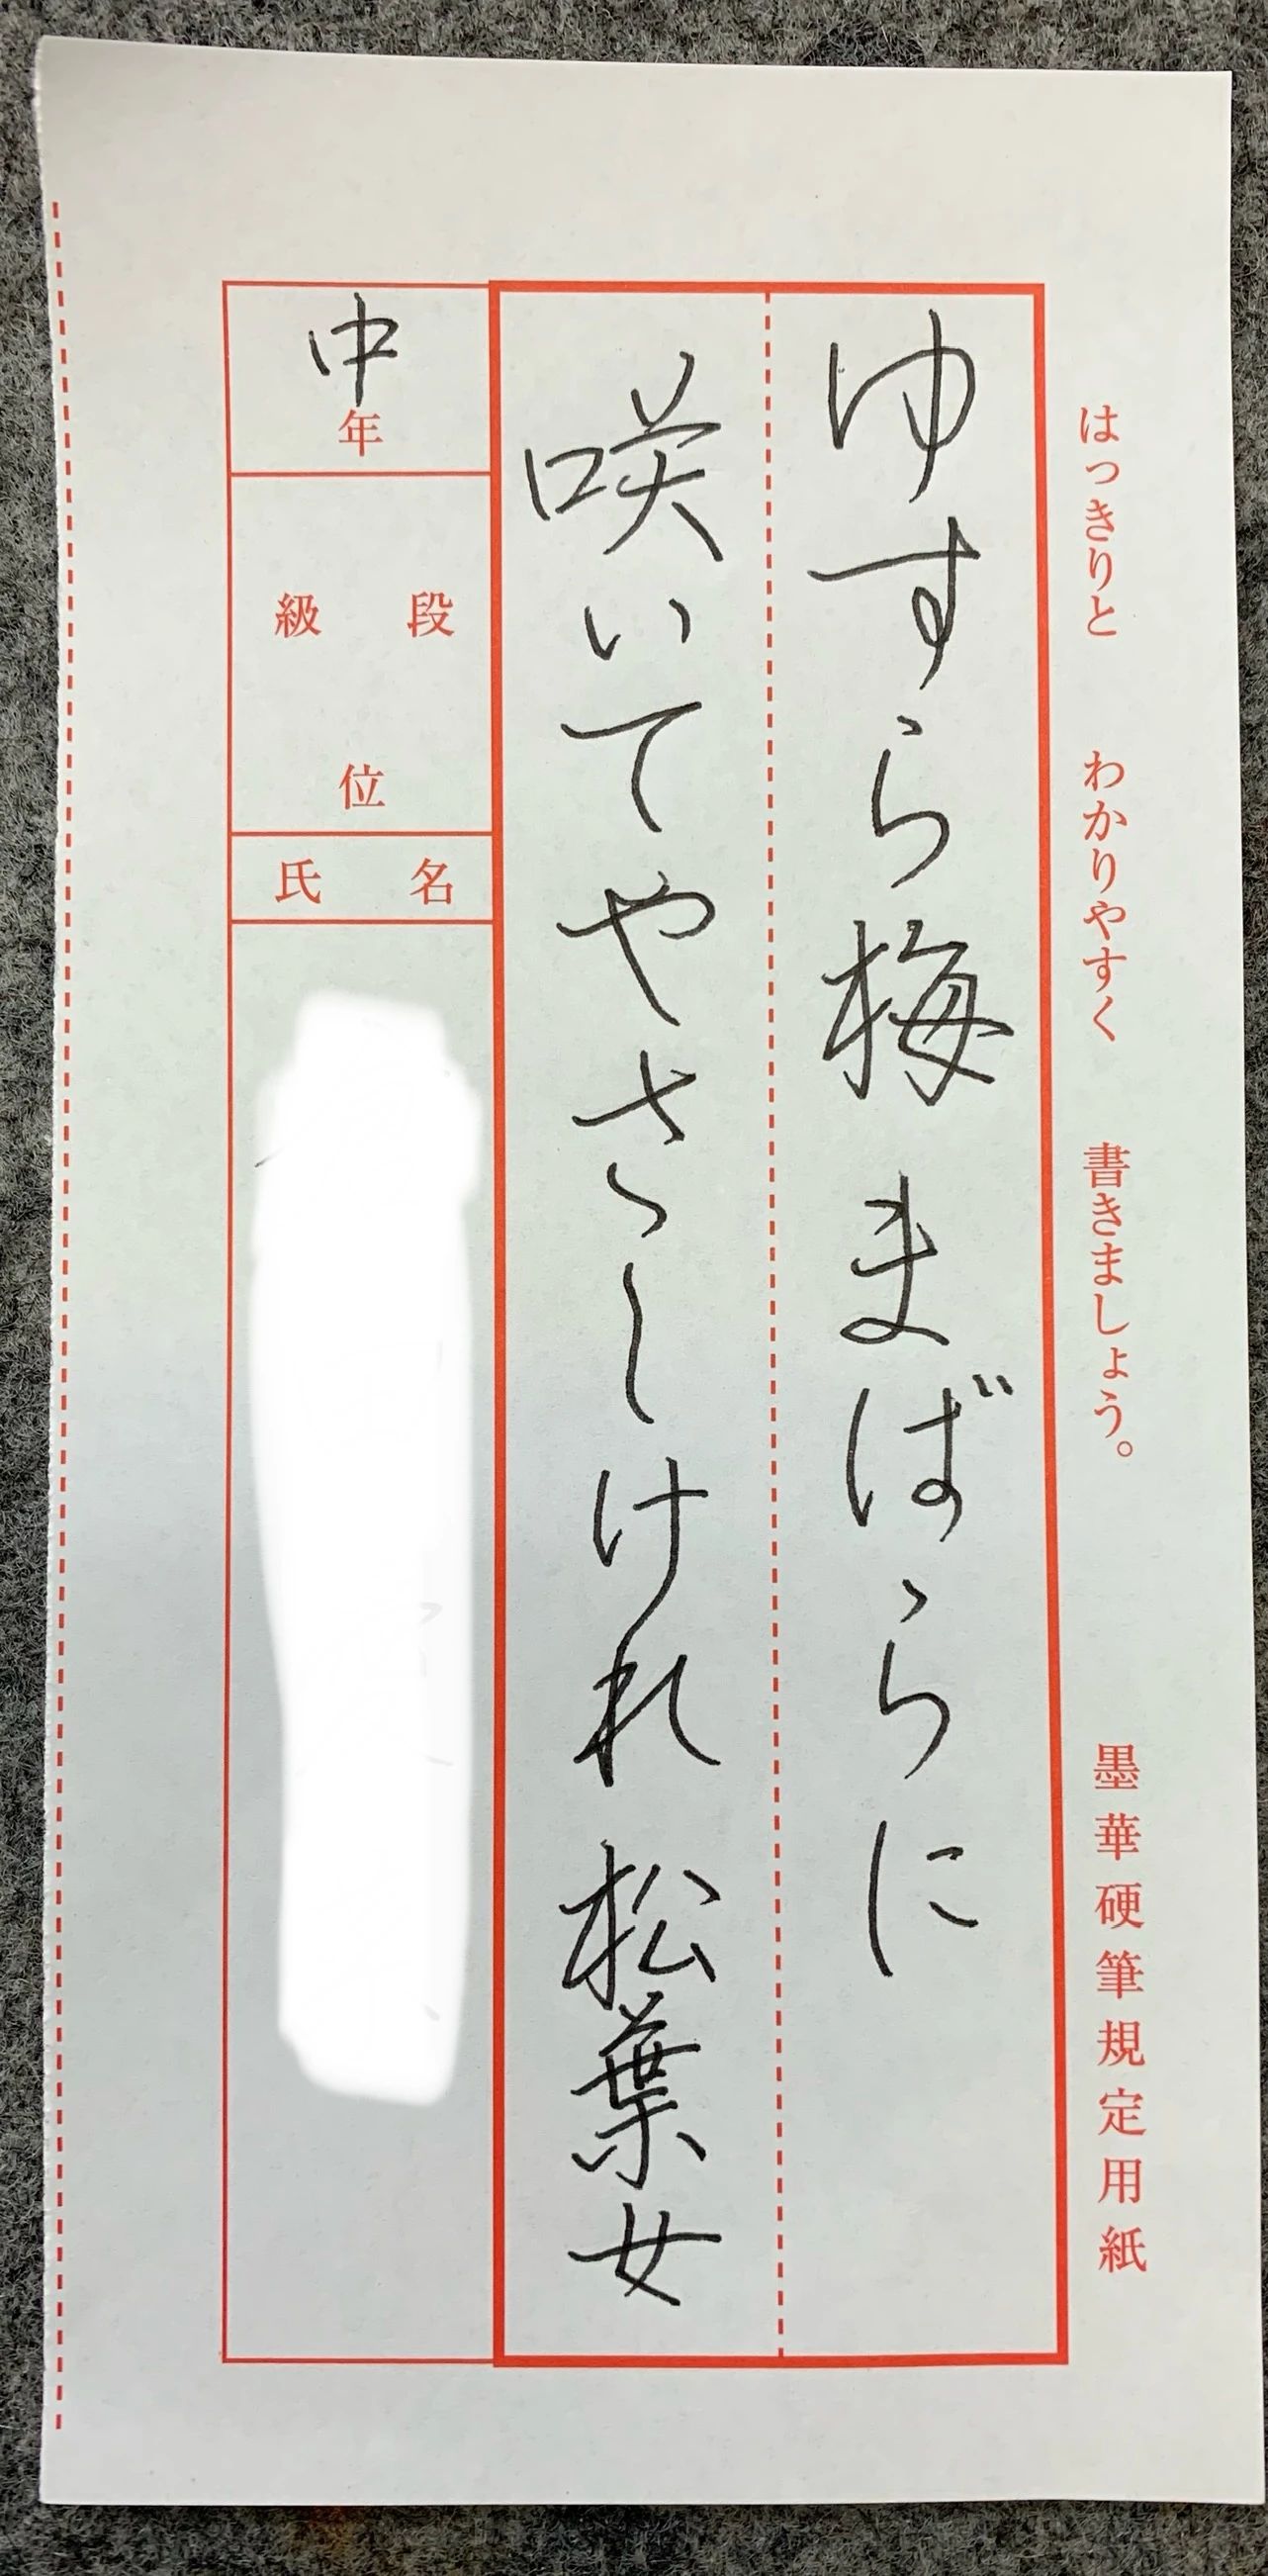 はっきりと わかりやすく 書きましょう。 墨華硬筆規定用紙
ゆすら梅まばらに
咲いてやさしけれ 松葉女
中年
段級位
名氏